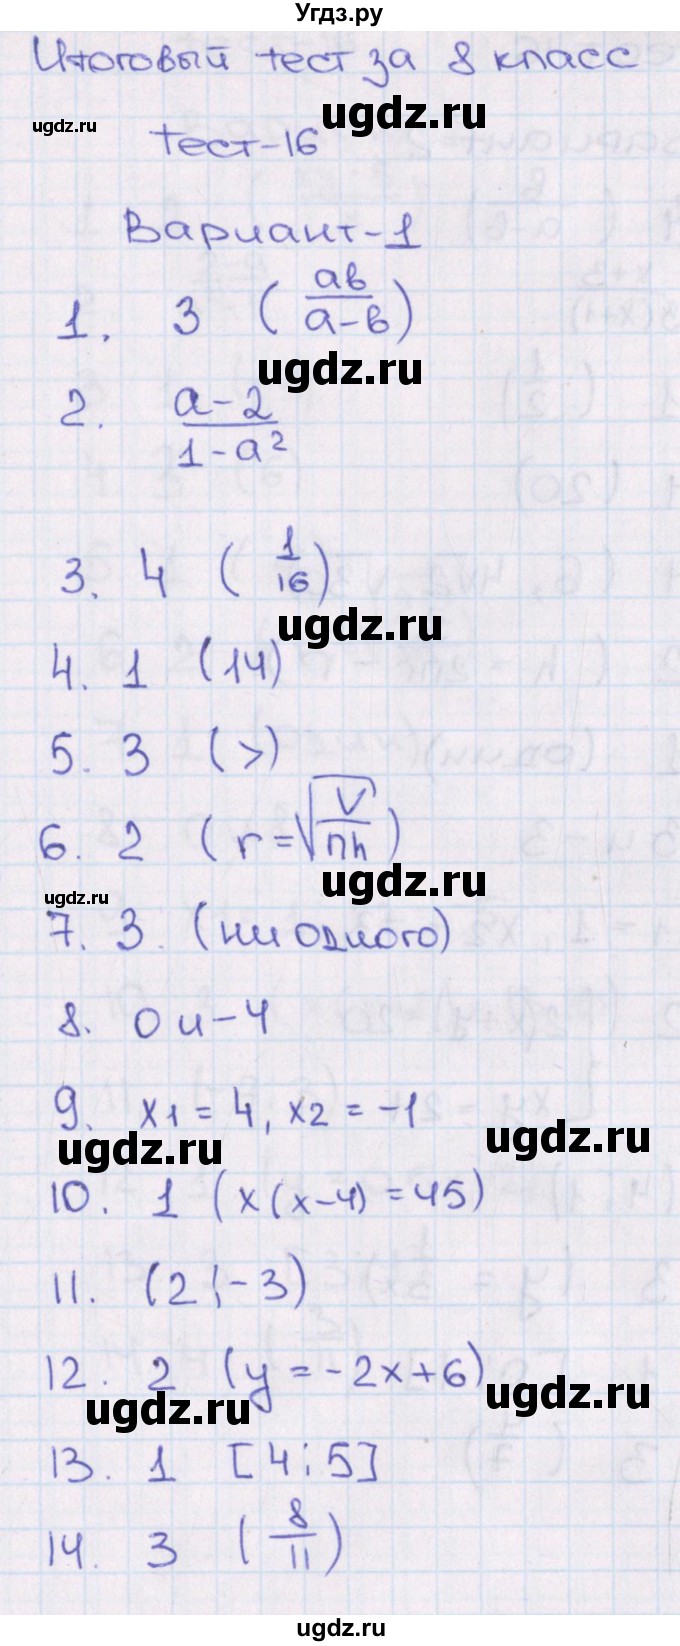 Угдз.ру
Итоговый тест за 8 класс
ugdz.ru ugdz.ru
Тест-16
Вариант-1
1. 3 (ab/(a-b))
ugdz.ru
2. (a-2)/(1-a²)
3. 4 (1/16)
ugdz.ru
4. 1 (14)
5. 3 (>)
6. 2 (r=√(V/πh))
ugdz.ru ugdz.ru
7. 3. (ни одного)
8. 0 и -4
9. x1 = 4, x2 = -1
ugdz.ru ugdz.ru
10. 1 (x(x-4) = 45)
11. (2;-3)
12. 2 (y = -2x+6)
ugdz.ru ugdz.ru
13. 1 [4;5]
14. 3 (8/11)
ugdz.ru